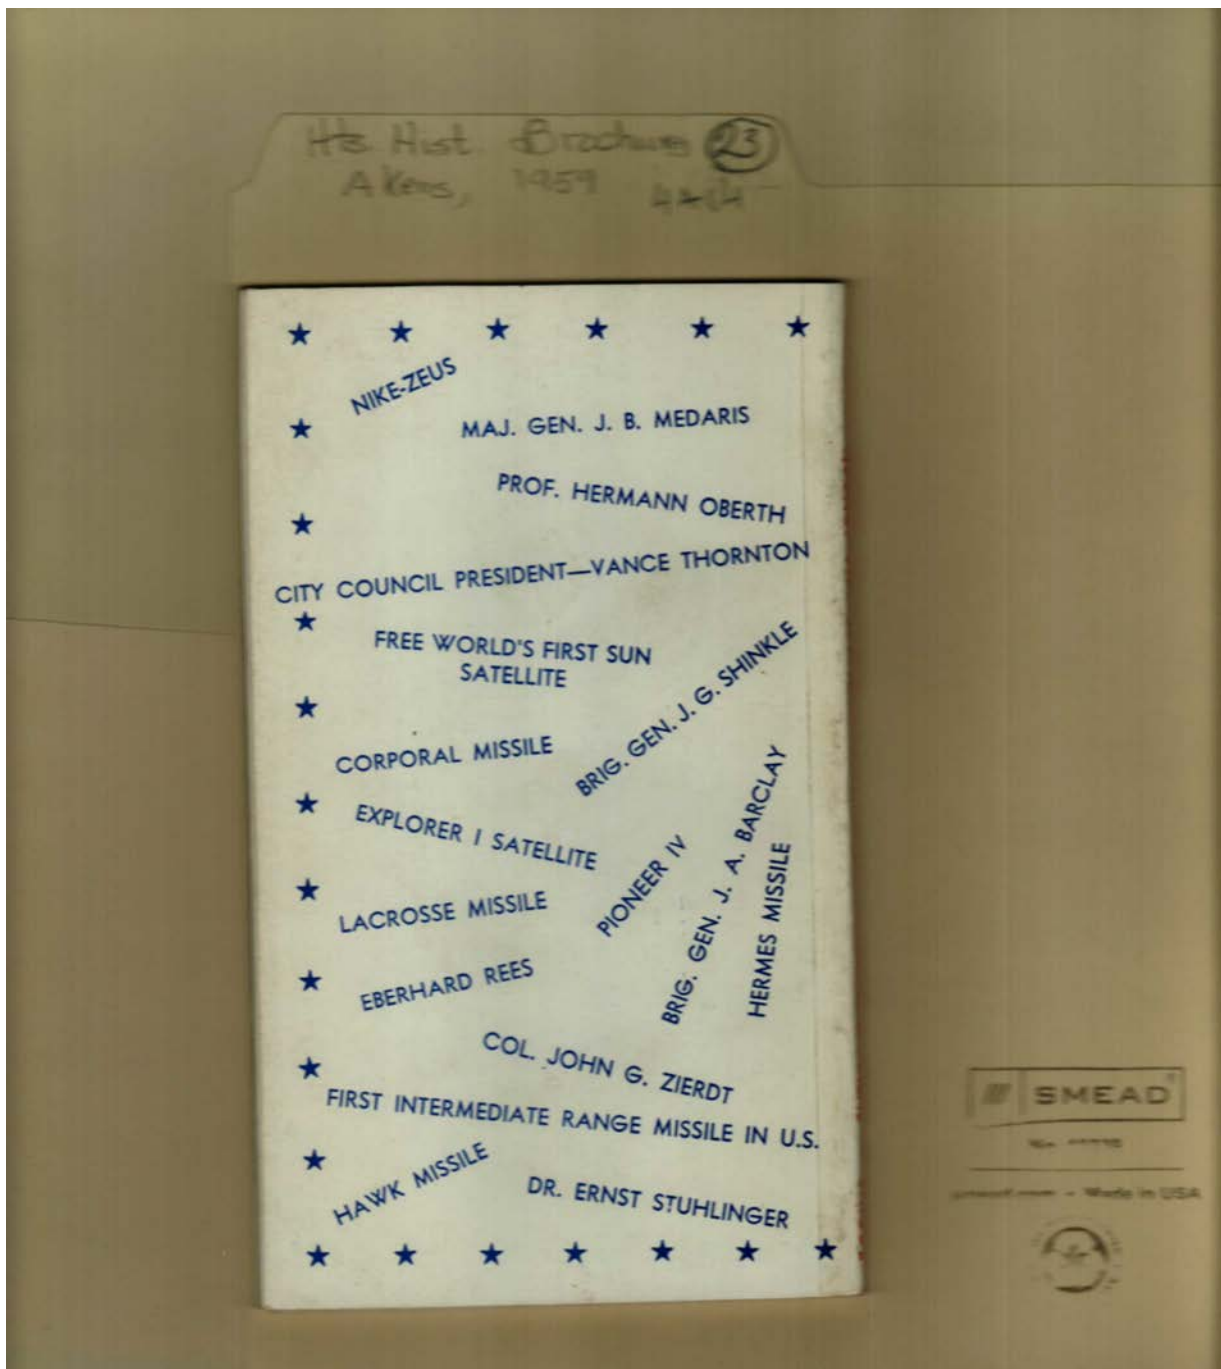 Hist. Brochures 23
Akens, 1959
NIKE-ZEUS
MAJ. GEN. J. B. MEDARIS
PROF. HERMANN OBERTH
CITY COUNCIL PRESIDENT—VANCE THORNTON
FREE WORLD'S FIRST SUN
SATELLITE
BRIG. GEN. J. G. SHINKLE
CORPORAL MISSILE
EXPLORER I SATELLITE
PIONEER IV
BRIG. GEN. J. A. BARCLAY
HERMES MISSILE
LACROSSE MISSILE
EBERHARD REES
COL. JOHN G. ZIERDT
FIRST INTERMEDIATE RANGE MISSILE IN U.S.
HAWK MISSILE
DR. ERNST STUHLINGER
SMEAD
No.
Made in USA